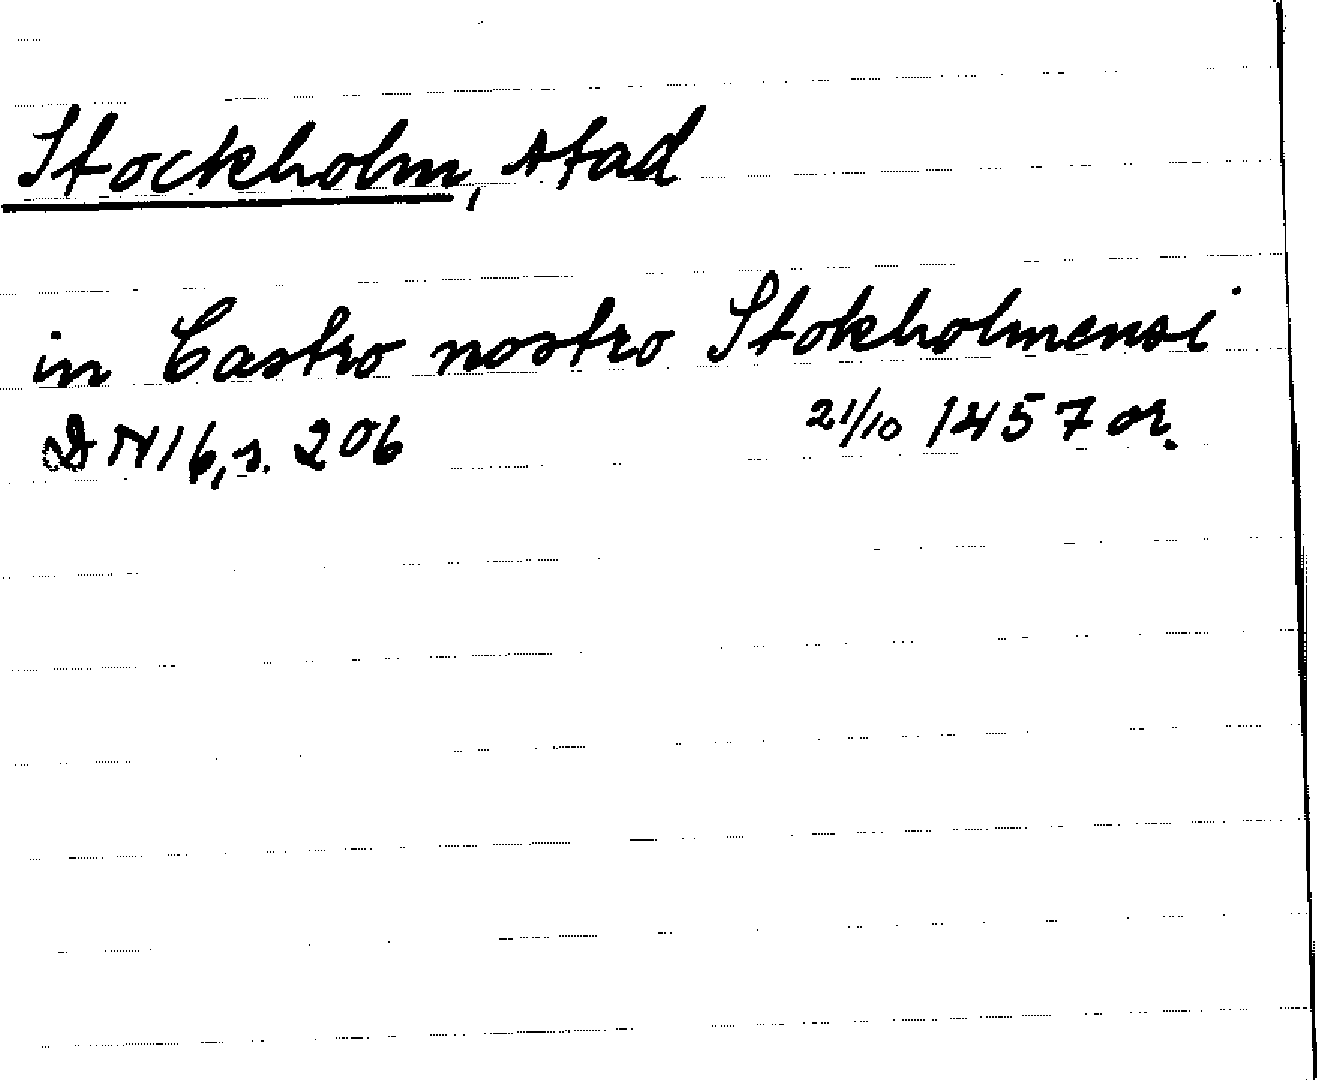 Stockholm, stad
in Castro nostro Stokholmensi
DN 16, s. 206 21/10 1457 or.